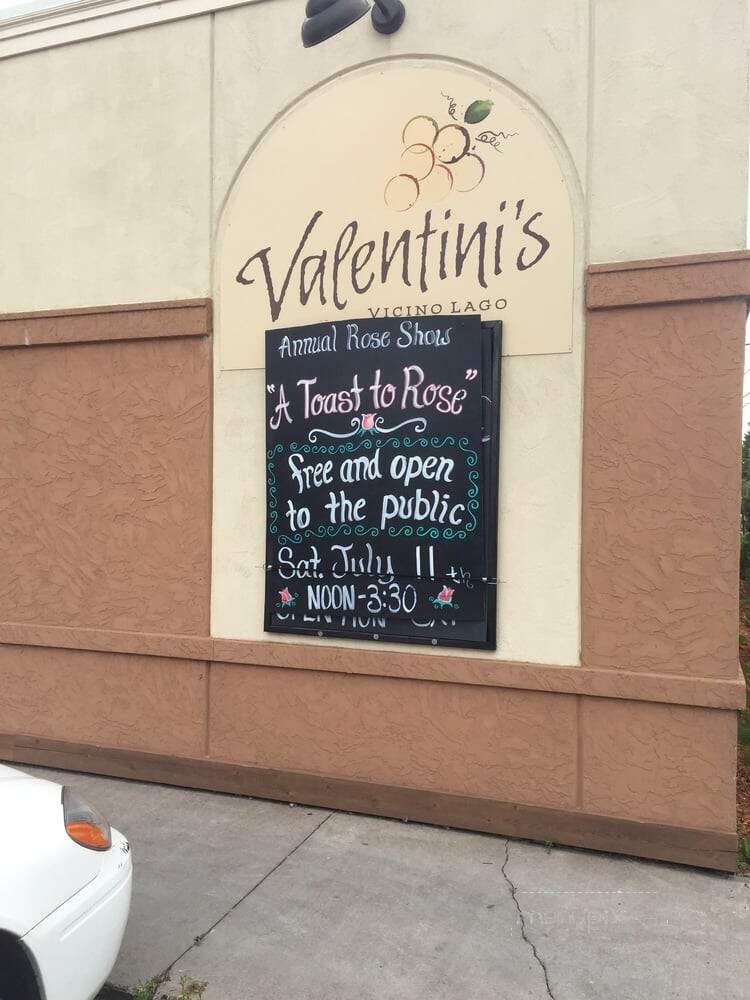 Valentini's
VICINO LAGO
Annual Rose Show
"A Toast to Rose"
free and open
to the public
Sat. July 11th
NOON-3:30
OPEN MON - SAT
menupix